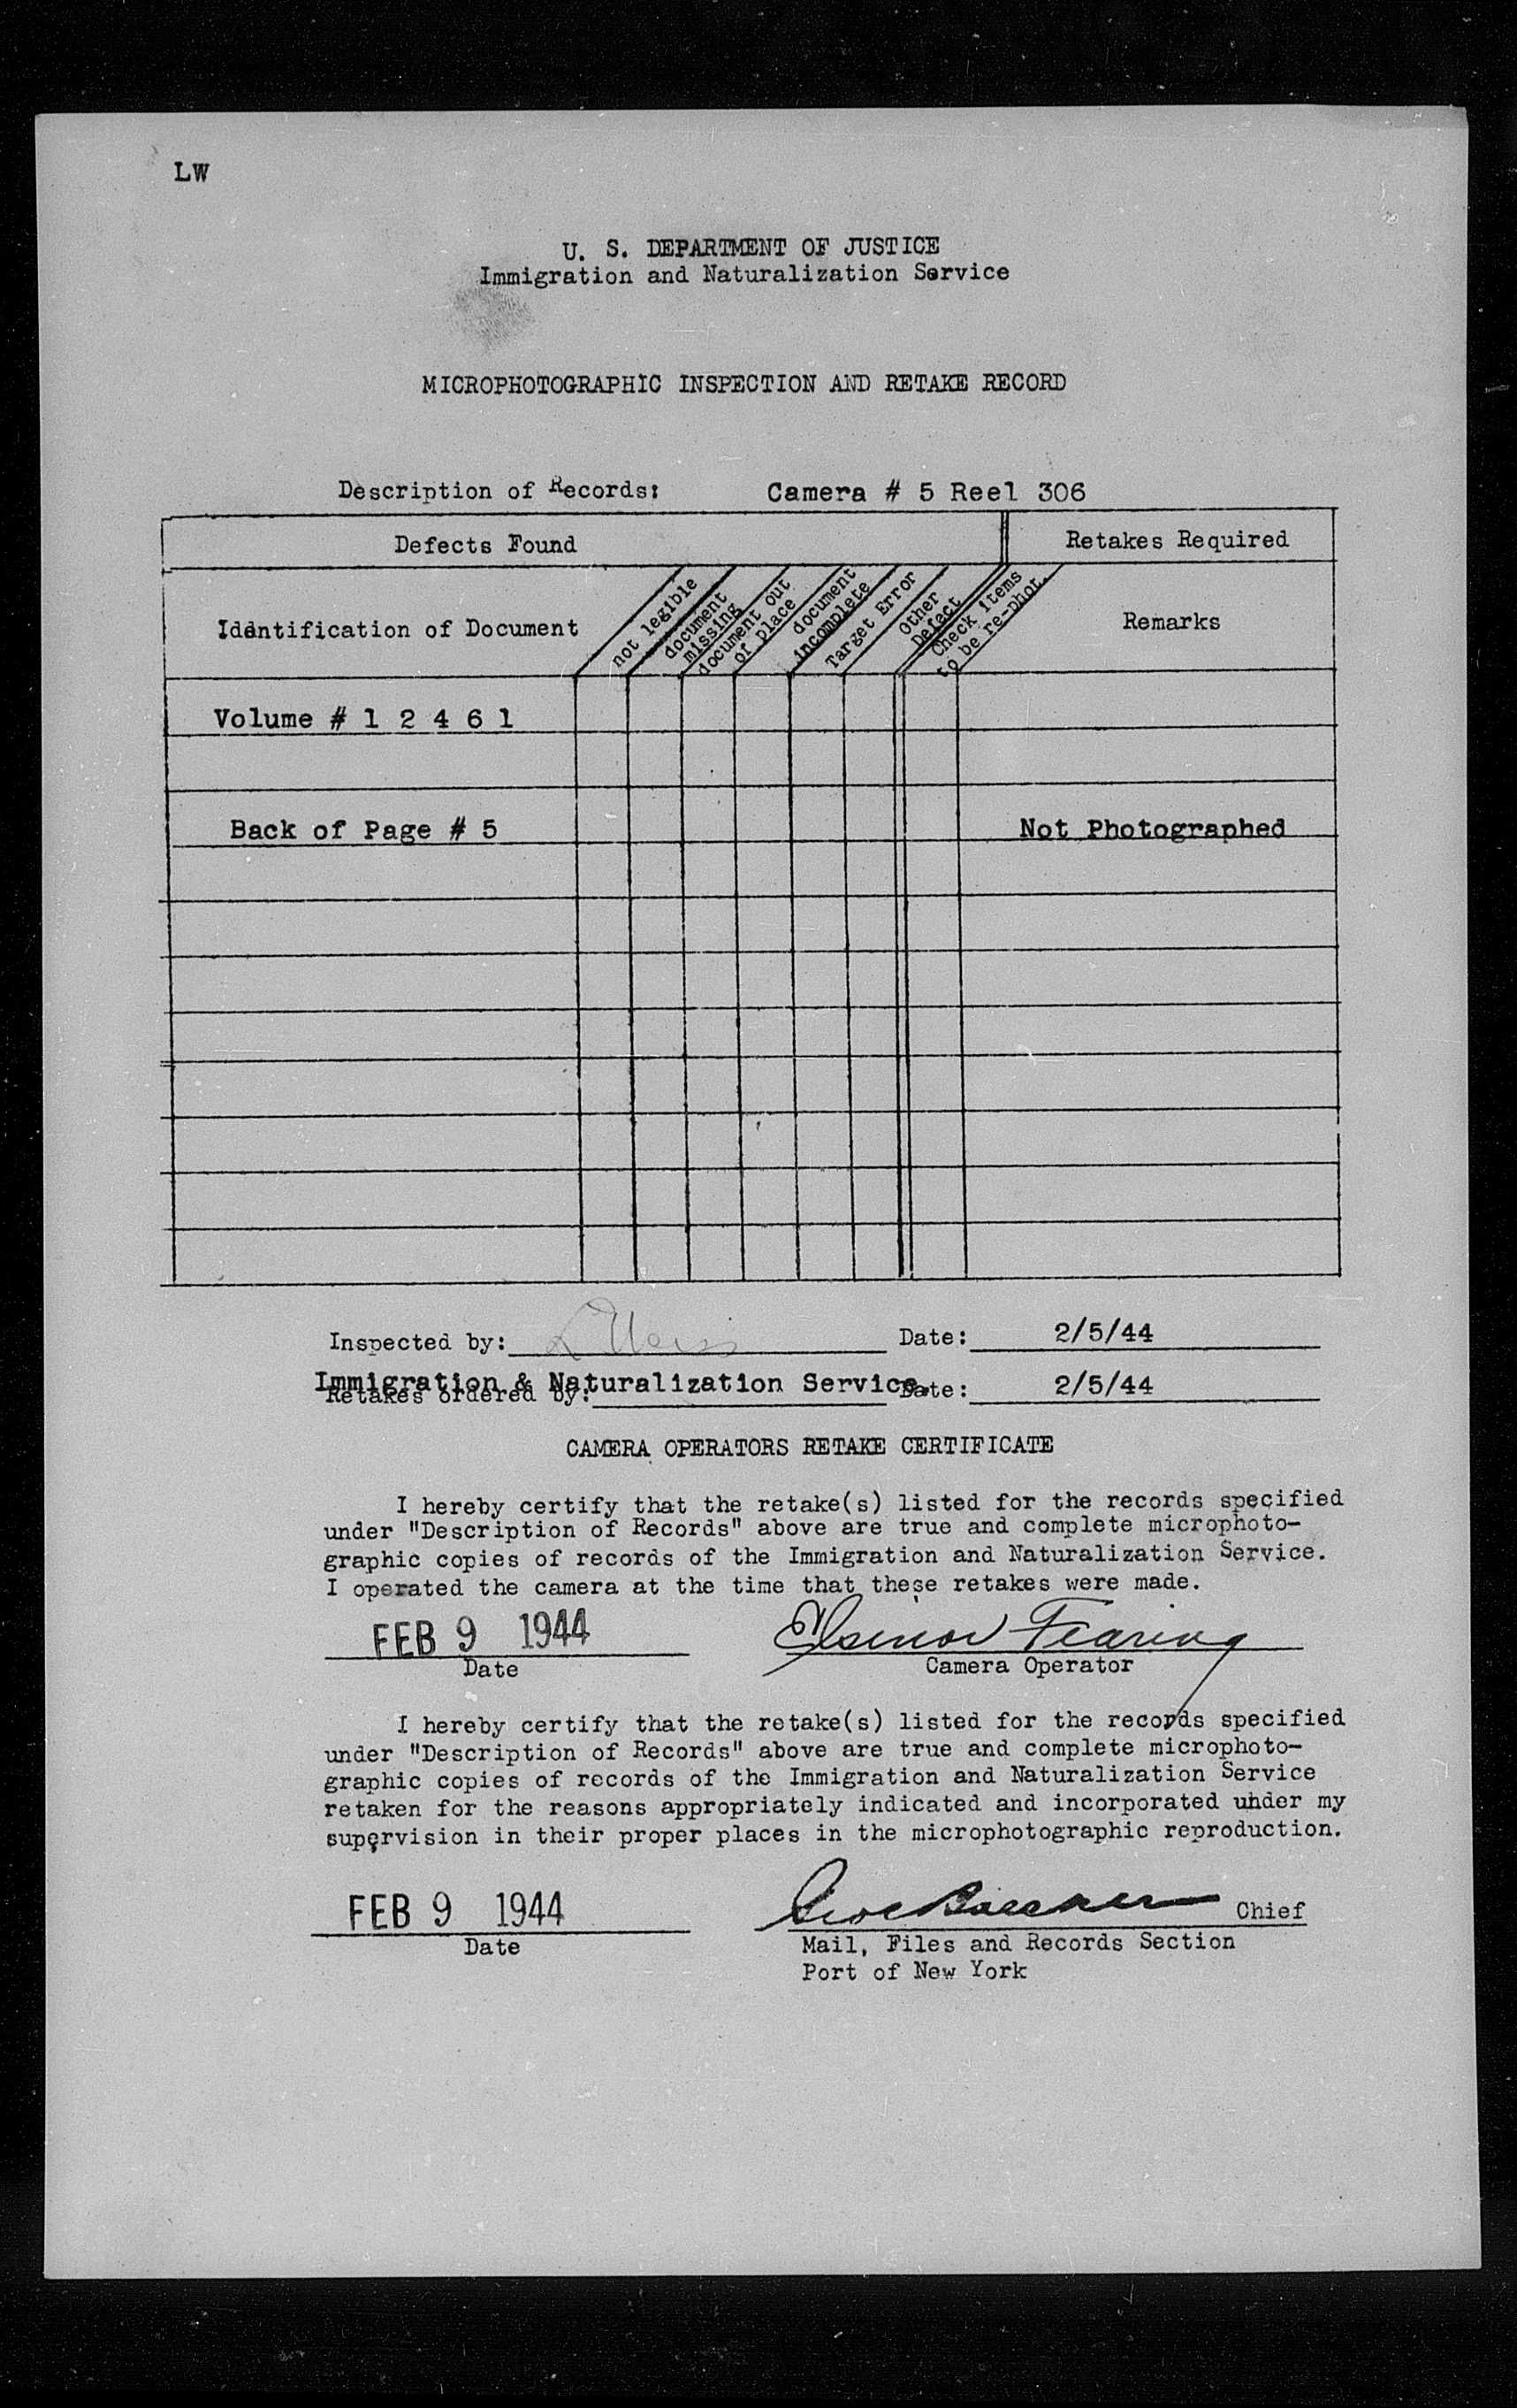 LW
U. S. DEPARTMENT OF JUSTICE
Immigration and Naturalization Service
MICROPHOTOGRAPHIC INSPECTION AND RETAKE RECORD
Description of Records: Camera # 5 Reel 306
Defects Found Retakes Required
Identification of Document
not legible
document
missing
document out
of place
document
incomplete
Target Error
Other
Defect
Check items
to be re-phot.
Remarks
Volume # 1 2 4 6 1
Back of Page # 5 Not Photographed
Inspected by: L Weiss Date: 2/5/44
Immigration & Naturalization Service.
Retakes ordered by: Date: 2/5/44
CAMERA OPERATORS RETAKE CERTIFICATE
I hereby certify that the retake(s) listed for the records specified
under "Description of Records" above are true and complete microphoto-
graphic copies of records of the Immigration and Naturalization Service.
I operated the camera at the time that these retakes were made.
FEB 9 1944 Eleanor Fearing
Date Camera Operator
I hereby certify that the retake(s) listed for the records specified
under "Description of Records" above are true and complete microphoto-
graphic copies of records of the Immigration and Naturalization Service
retaken for the reasons appropriately indicated and incorporated under my
supervision in their proper places in the microphotographic reproduction.
FEB 9 1944 Chief
Date Mail, Files and Records Section
Port of New York